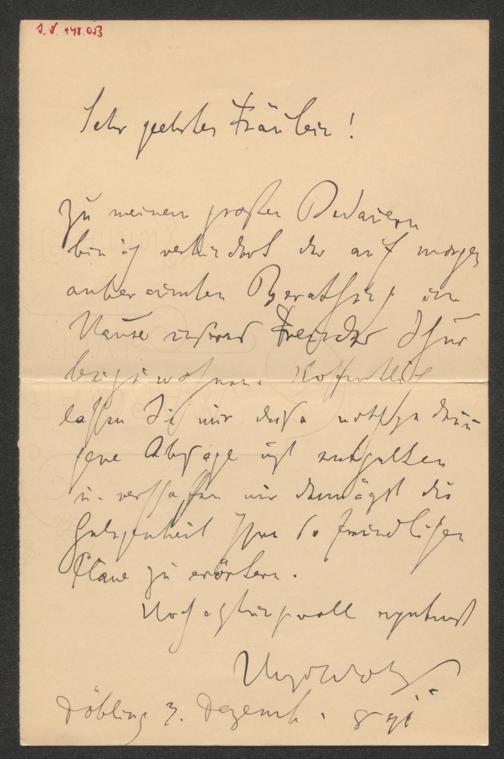 I. N. 148.053
Sehr geehrtes Fräulein!
Zu meinem großen Bedauern
bin ich verhindert der auf morgen
anberaumten Berathung im
Hause unseres Freundes
beizuwohnen. Hoffentlich
lassen Sie mir diese nothgedrun
gene Absage nicht entgelten
u. verschaffen mir demnächst die
Gelegenheit Ihre so freundlichen
Pläne zu erörtern.
Hochachtungsvoll ergebenst
Hugo Wolf
Döbling 3. Dezemb.